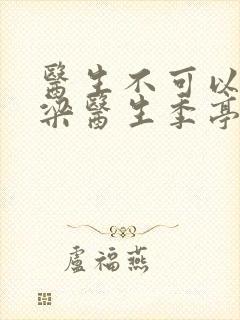 醫生不可以
梁醫生季亭
盧福燕